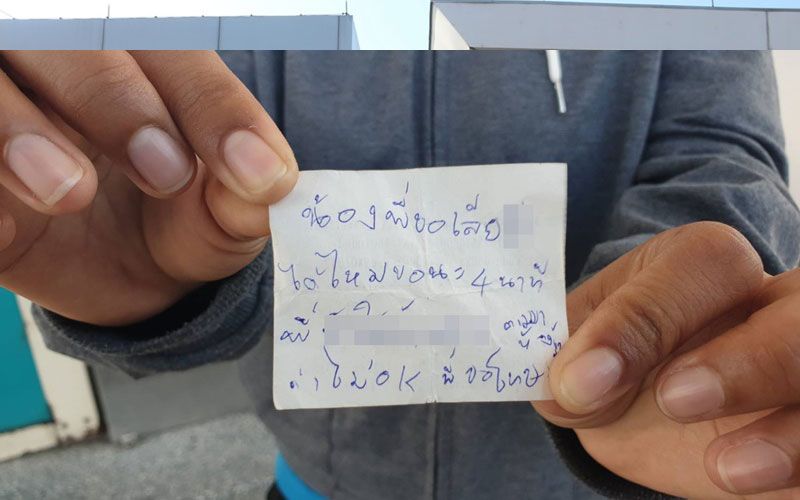 น้องพี่ขอเลีย
ได้ไหมขอนะ 4 นาที
พี่ ตามมา
ถ้าไม่ OK พี่ขอโทษ